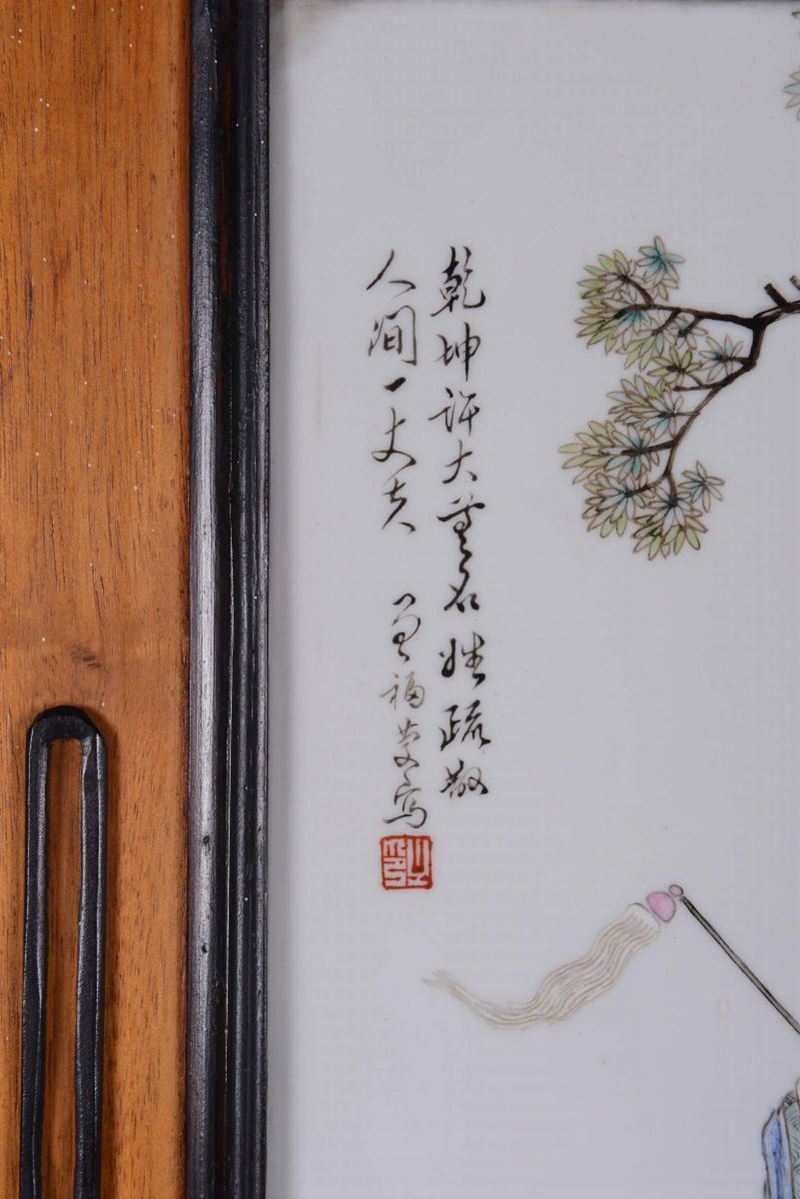 乾坤许大无名姓疏散
人间一丈夫
曾福庆写